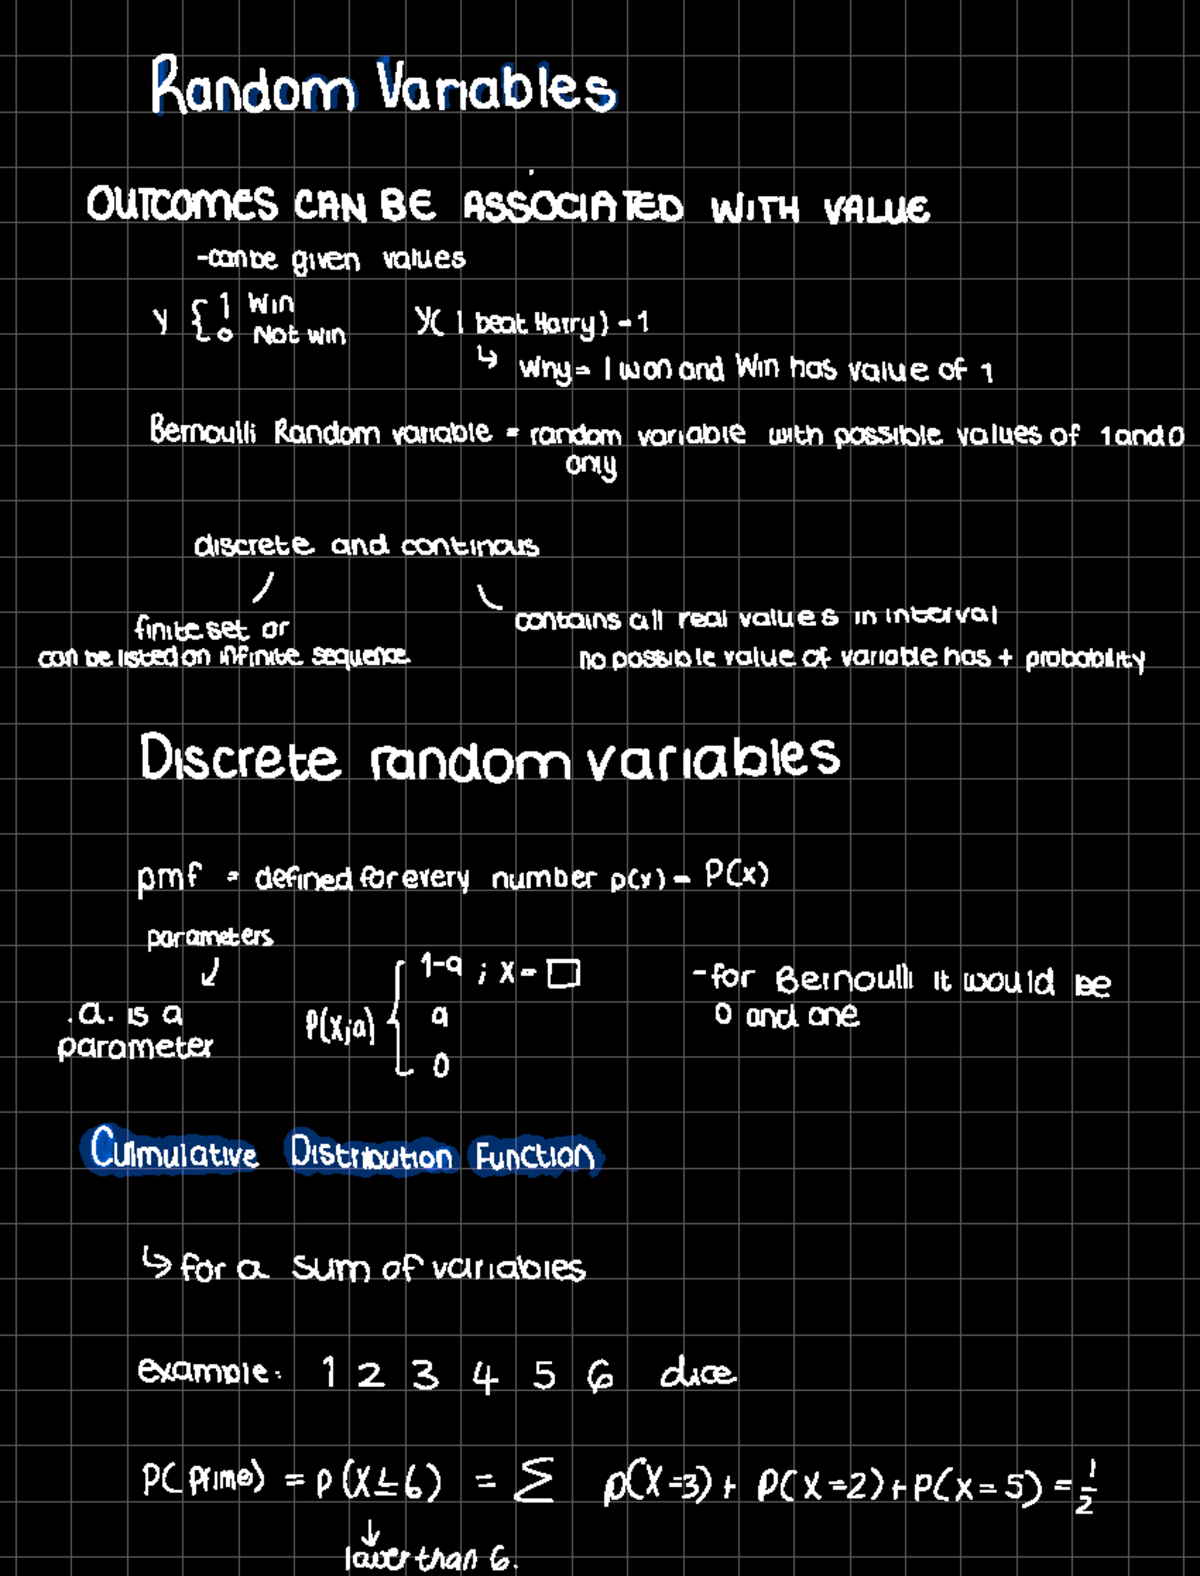 Random Variables
OUTCOMES CAN BE ASSOCIATED WITH VALUE
-can be given values
y { 1 Win
0 Not win
Y( I beat Harry) = 1
↳ Why = I won and Win has value of 1
Bernoulli Random variable = random variable with possible values of 1 and 0
only
discrete and continous
finite set or
can be listed on infinite sequence
contains all real values in interval
no possible value of variable has + probability
Discrete random variables
pmf = defined for every number p(x) = P(x)
parameters
↓
.a. is a
parameter
P(x;a) { 1-a ; x = □
a
0
-for Bernoulli it would be
0 and one
Culmulative Distribution Function
↳ for a sum of variables
example: 1 2 3 4 5 6 dice
P(Prime) = p(X≤6) = Σ p(X=3) + P(X=2) + P(x=5) = 1/2
↓
lower than 6.